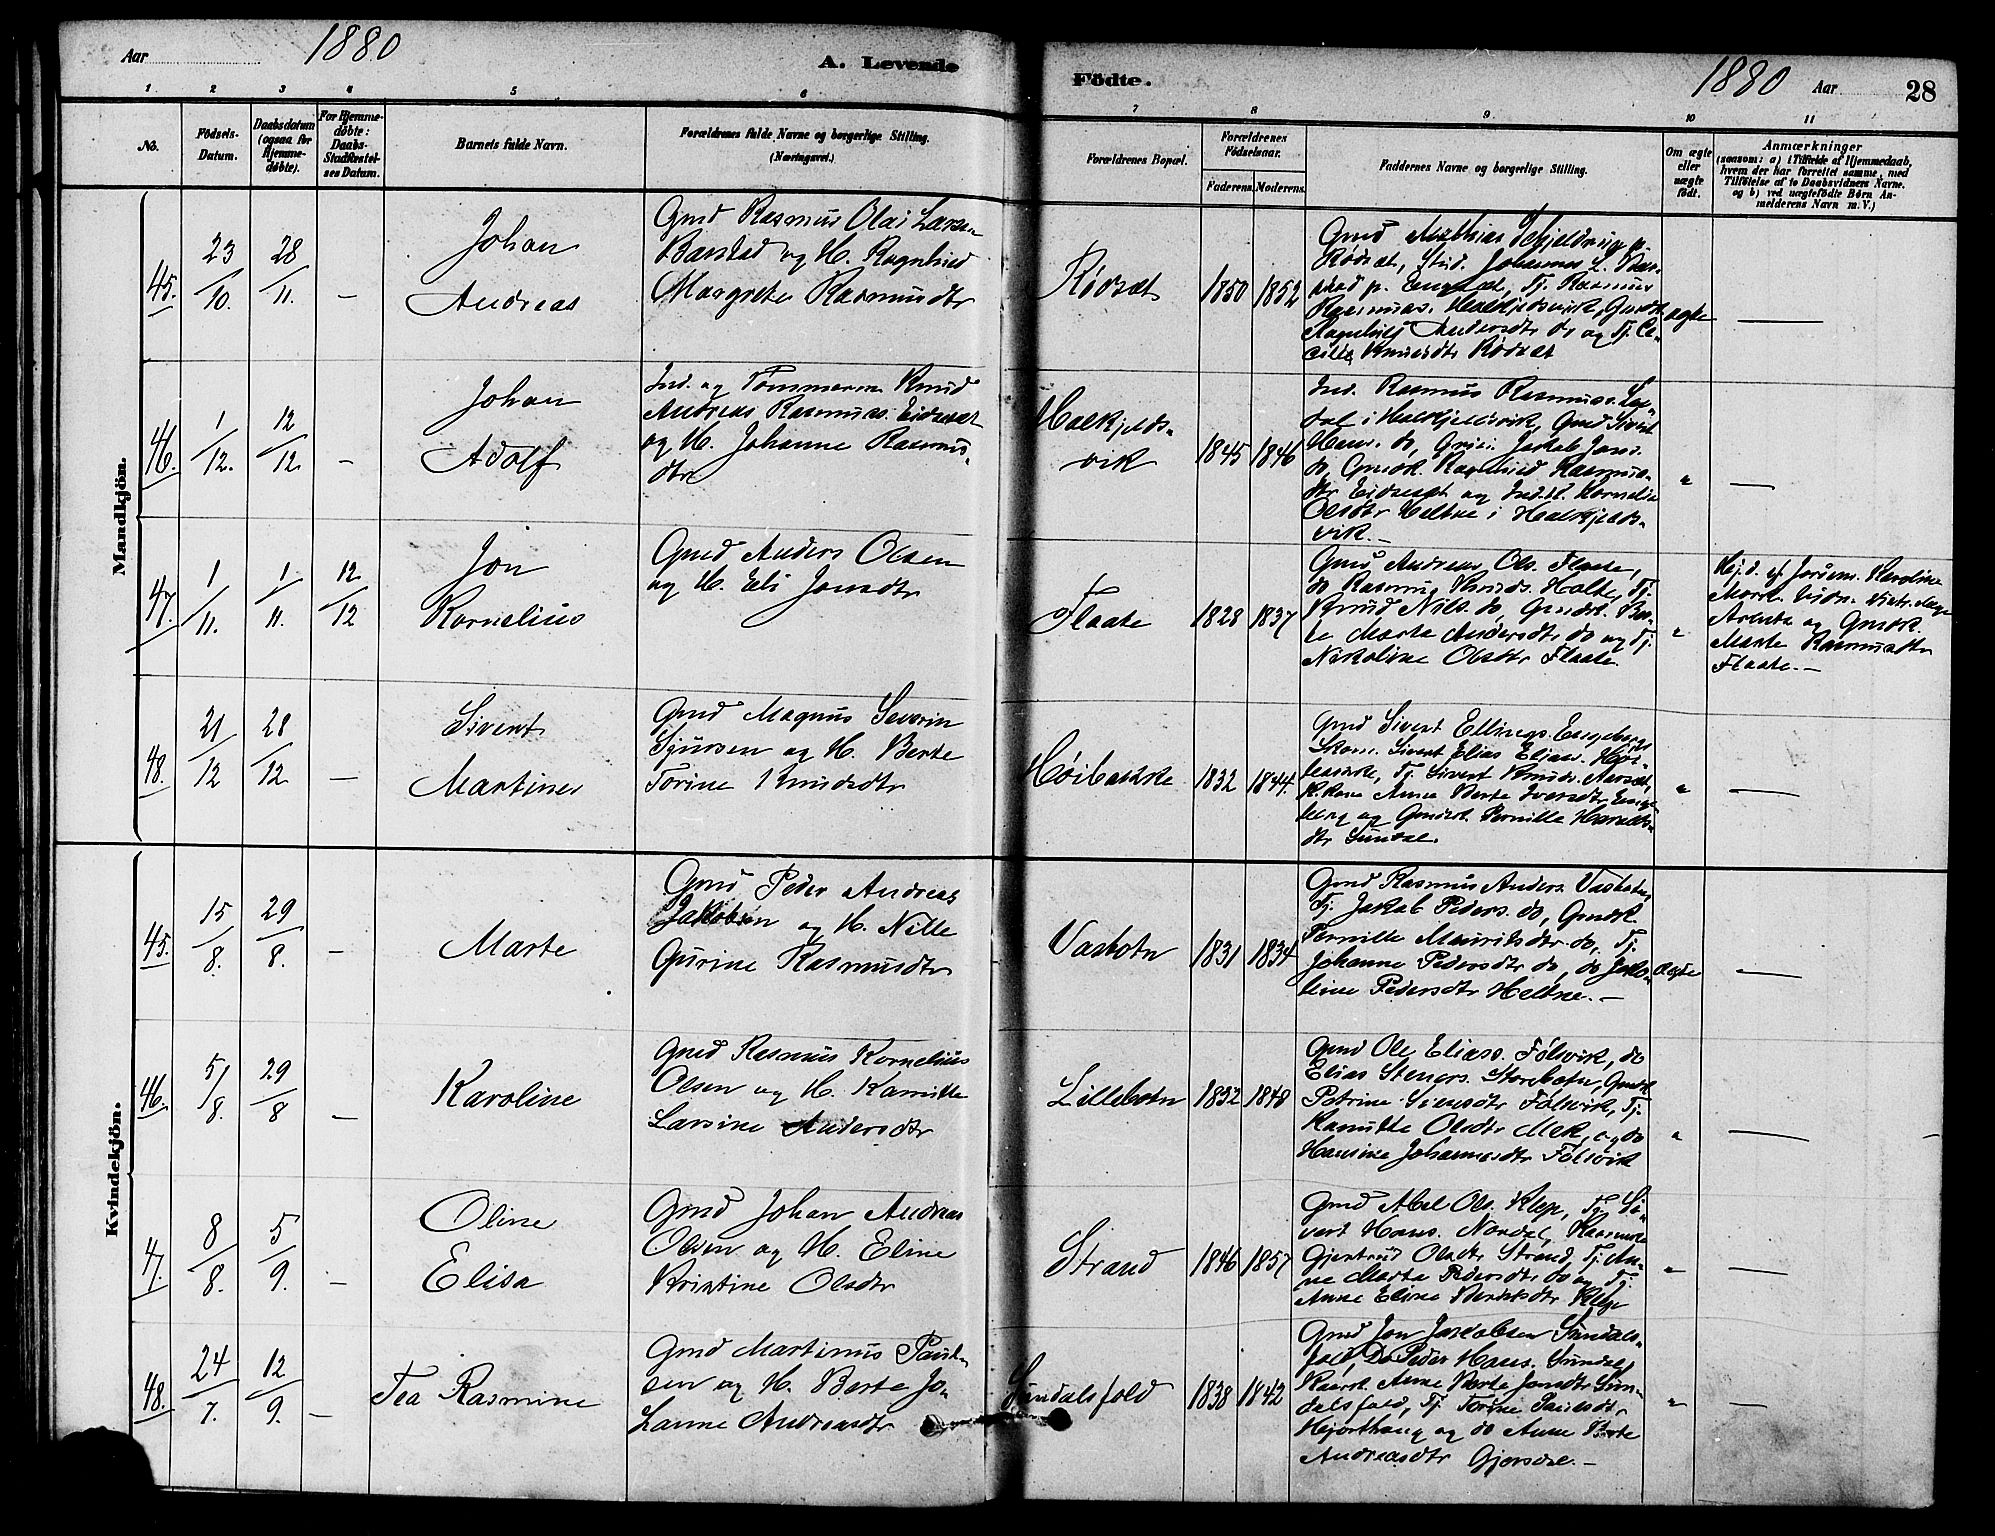 Aar 1880
A. Levende
Födte.
1880 Aar 28
1 2 3 4 5 6 7 8 9 10 11
No.
Födsels-
Datum.
Daabsdatum
(ogsaa for
Hjemme-
døbte).
For Hjemme-
døbte:
Daabs-
Stadfæstel-
ses Datum.
Barnets fulde Navn.
Forældrenes fulde Navne og borgerlige Stilling.
(Næringsvei.)
Forældrenes Bopæl.
Forældrenes
Födselsaar.
Faderens. Moderens.
Faddernes Navne og borgerlige Stilling.
Om ægte
eller
uægte
født.
Anmærkninger
(saasom: a) i Tilfælde af Hjemmedaab,
hvem der har forrettet samme, med
Tilföielse af to Daabsvidners Navne.
og b) ved uægtefödte Börn An-
melderens Navn m. V.)
Mandkjön.
45. 23/10. 28/11. –
Johan
Andreas
Gmd Rasmus Olai Larsen
Barstad og H. Ragnhild
Margrete Rasmusdtr
Rødsæt 1850 1852
Gmd Mathias Schjeldrup p.
Rødsæt, Stud. Johannes L. Bar-
stad p. Tj. Rasmus
Rasmuss. Halkjeldsvik, Gmdt
Ragnhild Andersdtr do og Tj. Ce-
cilie Knudsdtr Rødsæt
ægte —
46. 1/12. 12/12 –
Johan
Adolf
Ind. og Tømmerm. Knud
Andreas Rasmuss. Eidesæt
og H. Johanne Rasmus-
dtr
Halkjelds-
vik 1845 1846
Ind. Rasmus Rasmuss.
dal i Halkjeldsvik, Gmd Sivert
Hans. do, Jakob Jons.
do, Gmdk. Ragnhild Rasmus-
dtr Eidesæt og Indst. Kornelia
Olsdtr Heltne i Halkjelds-
vik. –
" —
47. 1/11. 1/11. 12/12
Jon
Kornelius
Gmd Anders Olsen
og H. Eli Jonsdtr
Flaate 1828 1837
Gmd Andreas Ols. Flaate,
do Rasmus Knuds. Holte, Tj.
Knud Nils. do, Gmdk. Be-
te Marte Andersdtr do og Tj.
Nikoline Olsdtr Flaate
"
Hj.d. af Jordem. Karoline
Mork.
Aflute og Gmdk.
Marte Rasmusdtr
Flaate. –
48. 21/12 28/12 –
Sivert
Martines
Gmd Magnus Severin
Sjursen og H. Berte
Torine Knudsdtr
Høibakke 1832 1844.
Gmd Sivert Ellings. Engeberg
Skom. Sivert Elias Elias. Høi-
bakke, Tj. Sivert Knuds. Aarsæt,
K.kone Anne Berte Iversdtr Enge-
berg og Gmdsk. Pernille Haralds-
dtr Sundal.
" —
Kvindekjön.
45. 15/8. 29/8. –
Marte
Gmd Peder Andreas
Jakobsen og H. Nille
Gurine Rasmusdtr
Vasbotn 1831 1834
Gmd Rasmus Anders. Vasbotn,
Tj. Jakob Peders. do, Gmdk.
Pernille Mauritsdtr do, Tj.
Johanne Pedersdtr do, do Jako-
bine Pedersdtr Heltne. –
ægte —
46. 5/8. 29/8 –
Karoline
Gmd Rasmus Kornelius
Olsen og H. Kamille
Larsine Andersdtr
Lillebotn 1832 1848
Gmd Ole Elias. Følsvik, do
Elias Steners. Storebotn, Gmdk
Petrine Sjursdtr Følsvik, Tj.
Kamille Olsdtr Mek, og do
Hansine Johannesdtr Følsvik
" —
47. 8/8. 5/9. –
Oline
Elisa
Gmd Johan Andreas
Olsen og H. Eline
Kristine Olsdtr
Strand 1846 1857
Gmd Abel Ols. Klep, Tj. Si-
vert Hans. Nordal,
Gjertrud Olsdtr Strand, Tj. An-
ne Marta Pedersdtr do og Tj.
Anne Eline Berntsdtr Klep
" —
48. 24/7. 12/9. –
Tea Rasmine
Gmd Martinus Paul-
sen og H. Berte Jo-
hanne Andreasdtr
Sundalsfold 1838 1842
Gmd Jon Jakobsen Sundals-
fold, Do Peder Hans. Sundal,
Kaark. Anne Berte Jonsdtr Sun-
dalsfold, Tj. Torine Paulsdtr
Hjorthaug og do Anne Berte
Andreasdtr Gjersdal. –
" —